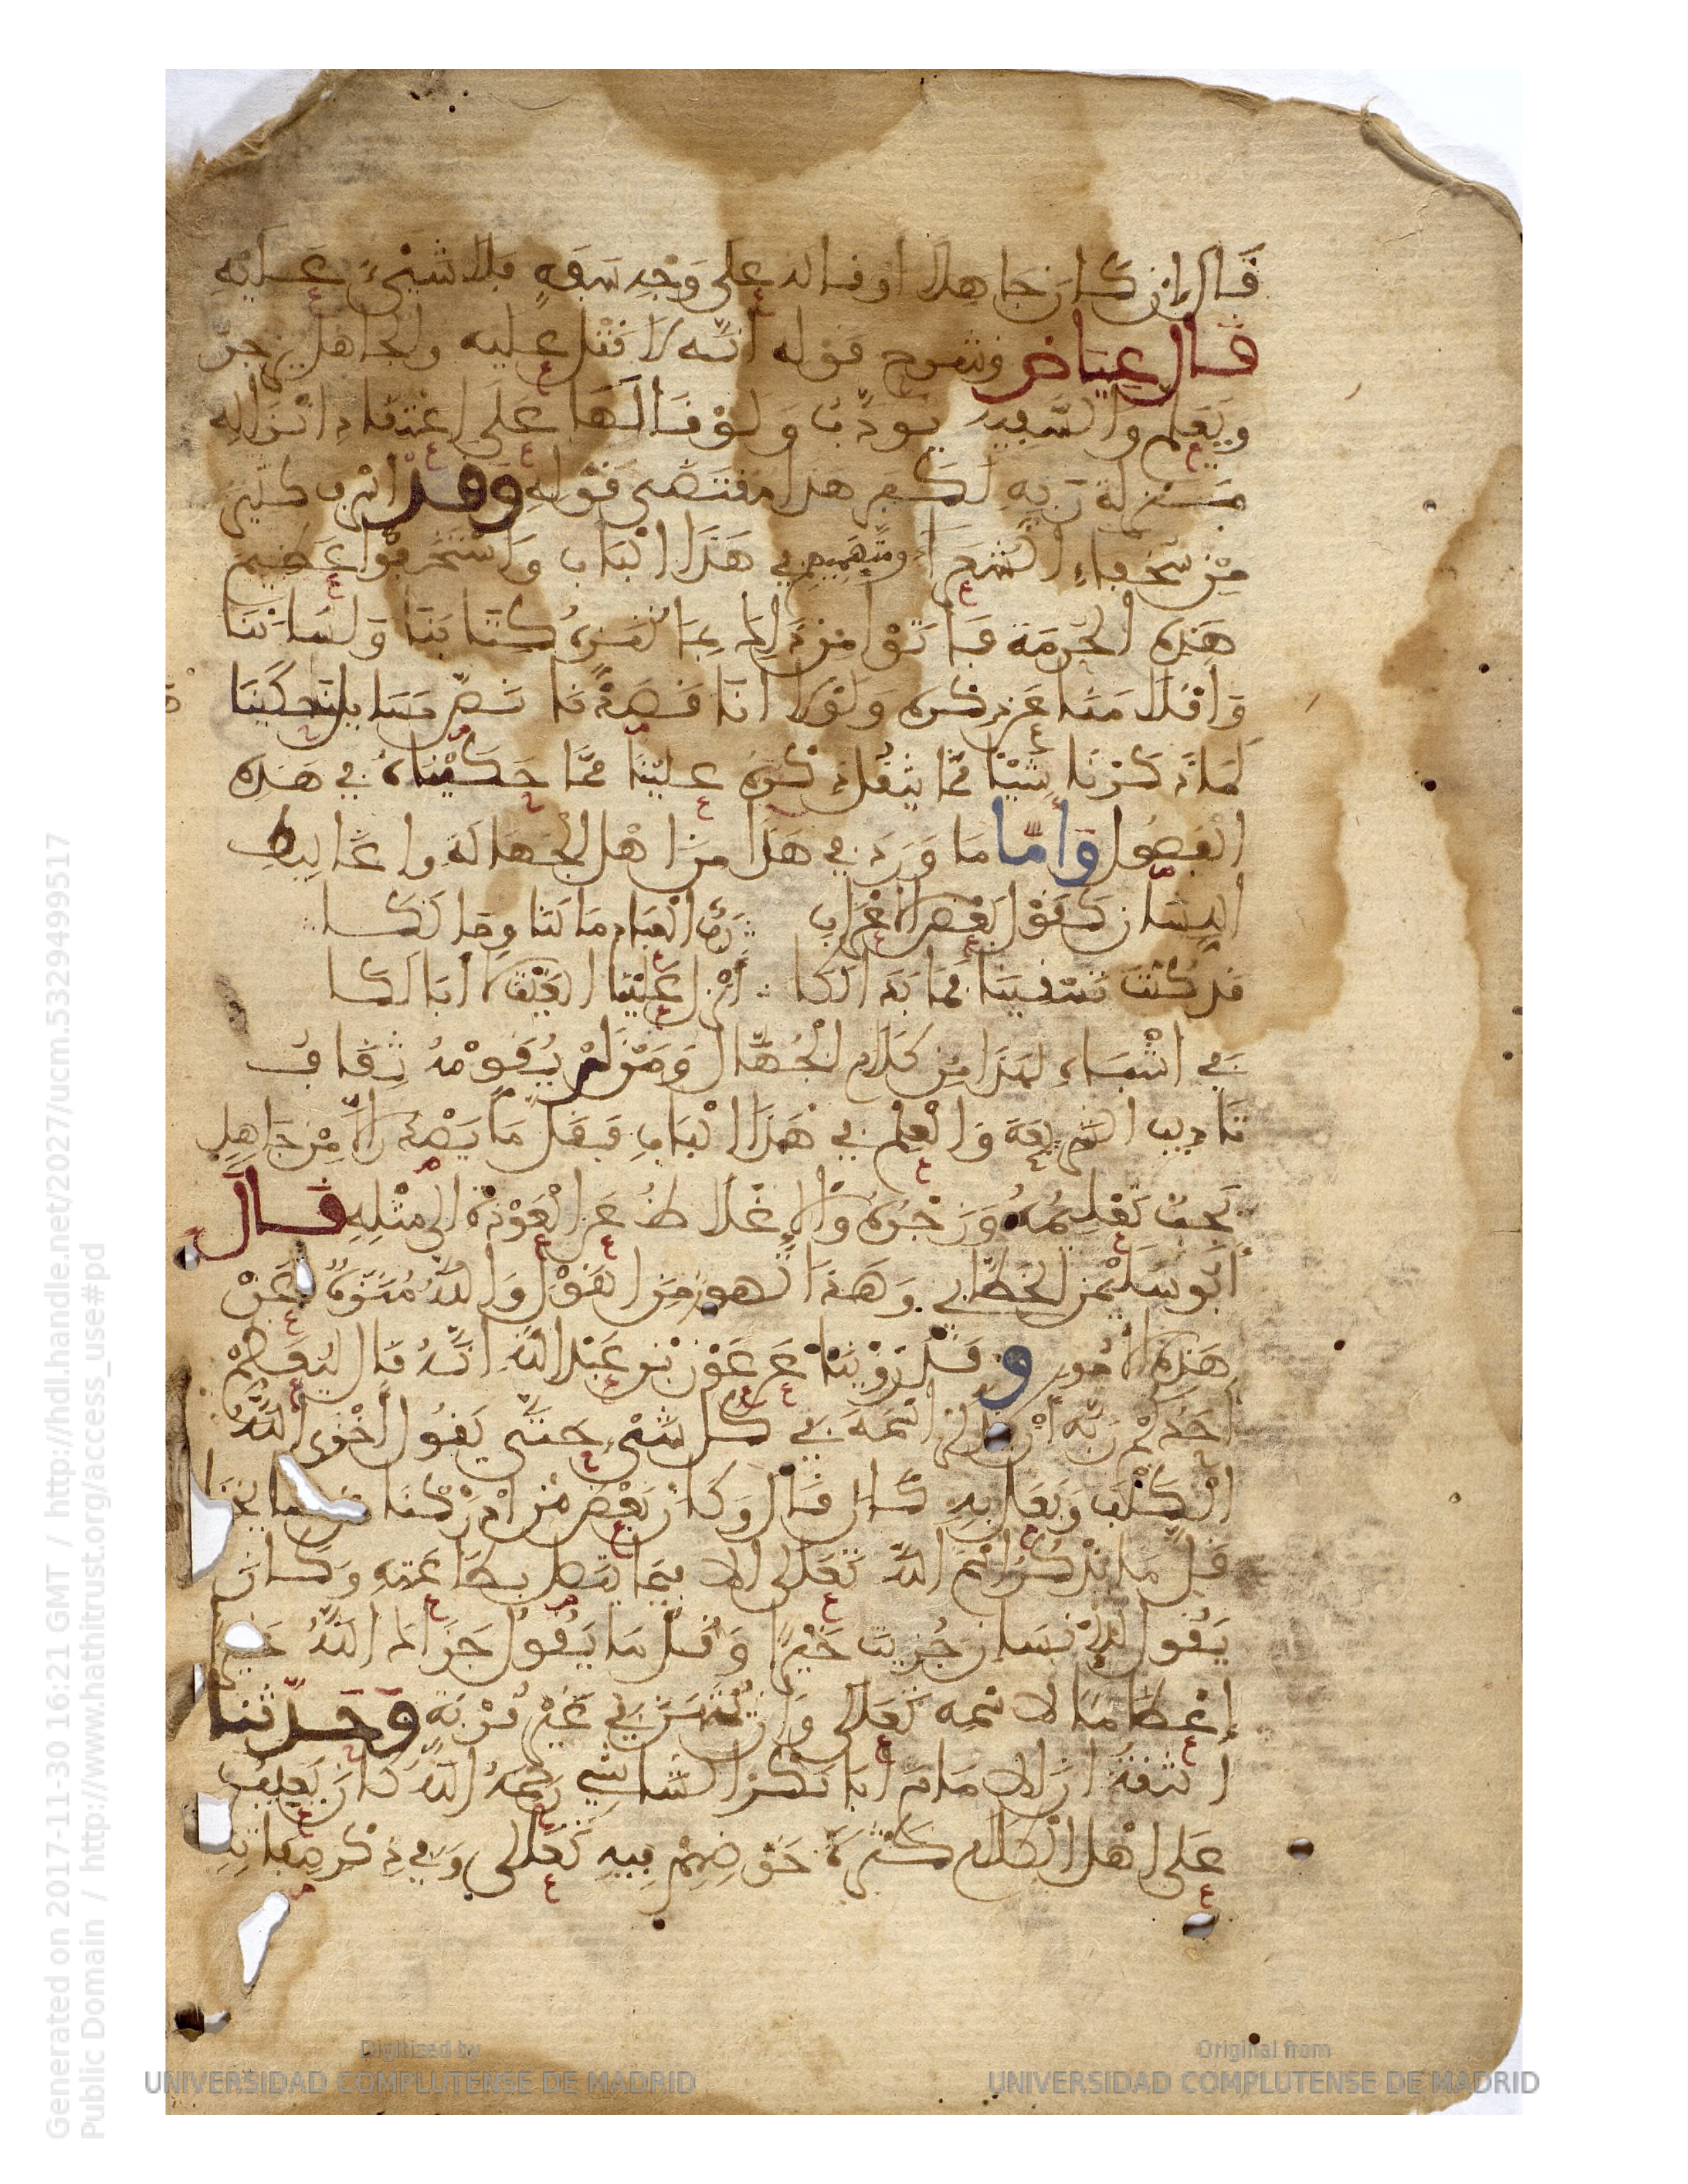 قَال إن كَان جَاهلا أو قاله على وَجْه سَفَهٍ فلا شيْءَ عليْه
قال عياض وشرح قوله أنّه لا قَتْل عليه والجاهل يزجر
ويُعَلم والسَّفيه يودّب وَلوْ قالَها عَلَى اعْتقاد انْزاله
مَنزلة رَبه لَكفر هذا مقتضى قوْله وقد اسرف كثير
مِّن سُخفاء الشعراء ومتهميهم في هَذَا الْبَاب وَاسْتخفوا عَظيم
هَذه الحُرمَة فأتَوْا من ذَلك بمَا نُنَزه كتَابَنَا وَلسَانَنَا
وَأقْلامَنَا عَن ذكره وَلوْلا أنَّا قَصَدْنَا نَصّ مَسَايل حكَيْنَاهَا
لمَا ذَكرْنَا شَيْئا ممَّا يثقُل ذكْرُهُ عليْنَا ممَّا حَكيْنَاهُ في هَذه
الْفصُول وأمَّا مَا وَرَدَ في هَذَا من اهْل الْجَهَالَة واغَاليط
اللسَان كقَوْل بَعْض الأعْرَاب رَبَّ الْعبَاد مَا لَنَا ومَا لَكَا
قَد كُنْتَ تَسْقينَا فمَا بَدَا لكَا أنْزل عَلَيْنَا الغَيْثَ لا أبَا لَكَا
في أشْبَاه لهَذَا منْ كَلَام الْجُهَّال وَمَنْ لمْ يُقَوّمْهُ ثِقَافُ
تَأديب الشريعَة وَالعلْم في هَذَا الْبَاب فَقَلّ مَا يَصْدُر الا مِنْ جَاهِلٍ
يَجبُ تَعْلِيمُهُ وَزَجْرُهُ وَالإغْلَاظُ عَن الْعَوْدَة الى مثْلِهِ قَال
أبُو سُلَيْمن الخَطَّابي وَهَذَا تَهور مِّنَ القَوْل وَاللهُ مُنَزّهٌ عَنْ
هَذه الامُور وقَدْ رَوَيْنَا عَن عَوْن بْن عَبْد الله انَّهُ قَال ليُعَظمْ
أحَدُكمْ رَبَّه أنْ يَّذكر اسْمَهُ في كل شَيْء حَتَّى يَقُول أخْزَى اللهُ
الْكلْبَ وَفعَل به كذا قَال وَكَان بَعْض مَن ادْرَكنَا مِن مشايخنا
قَل مَا يَذكُرُ اسْمَ الله تَعَلى الا فيمَا يتَّصل بطَاعَته وَكَان
يَقُول للإنْسَان جُزيتَ خَيْرًا وَقَلّ مَا يَقُول جَزَاك اللهُ خَيْرًا
إعْظامًا لاسْمه تَعَلى أن يُّمْتَهَنَ في غَيْر قُرْبَةٍ وحَدّثنا
الثقَةُ انّ الامَامَ أبَا بَكْر الشاشي رَحمَهُ اللهُ كَانَ يَعيبُ
عَلى اهْل الْكلام كثْرَةَ خَوْضِهمْ فيه تَعَلى وَفي ذكْر صِفَاته